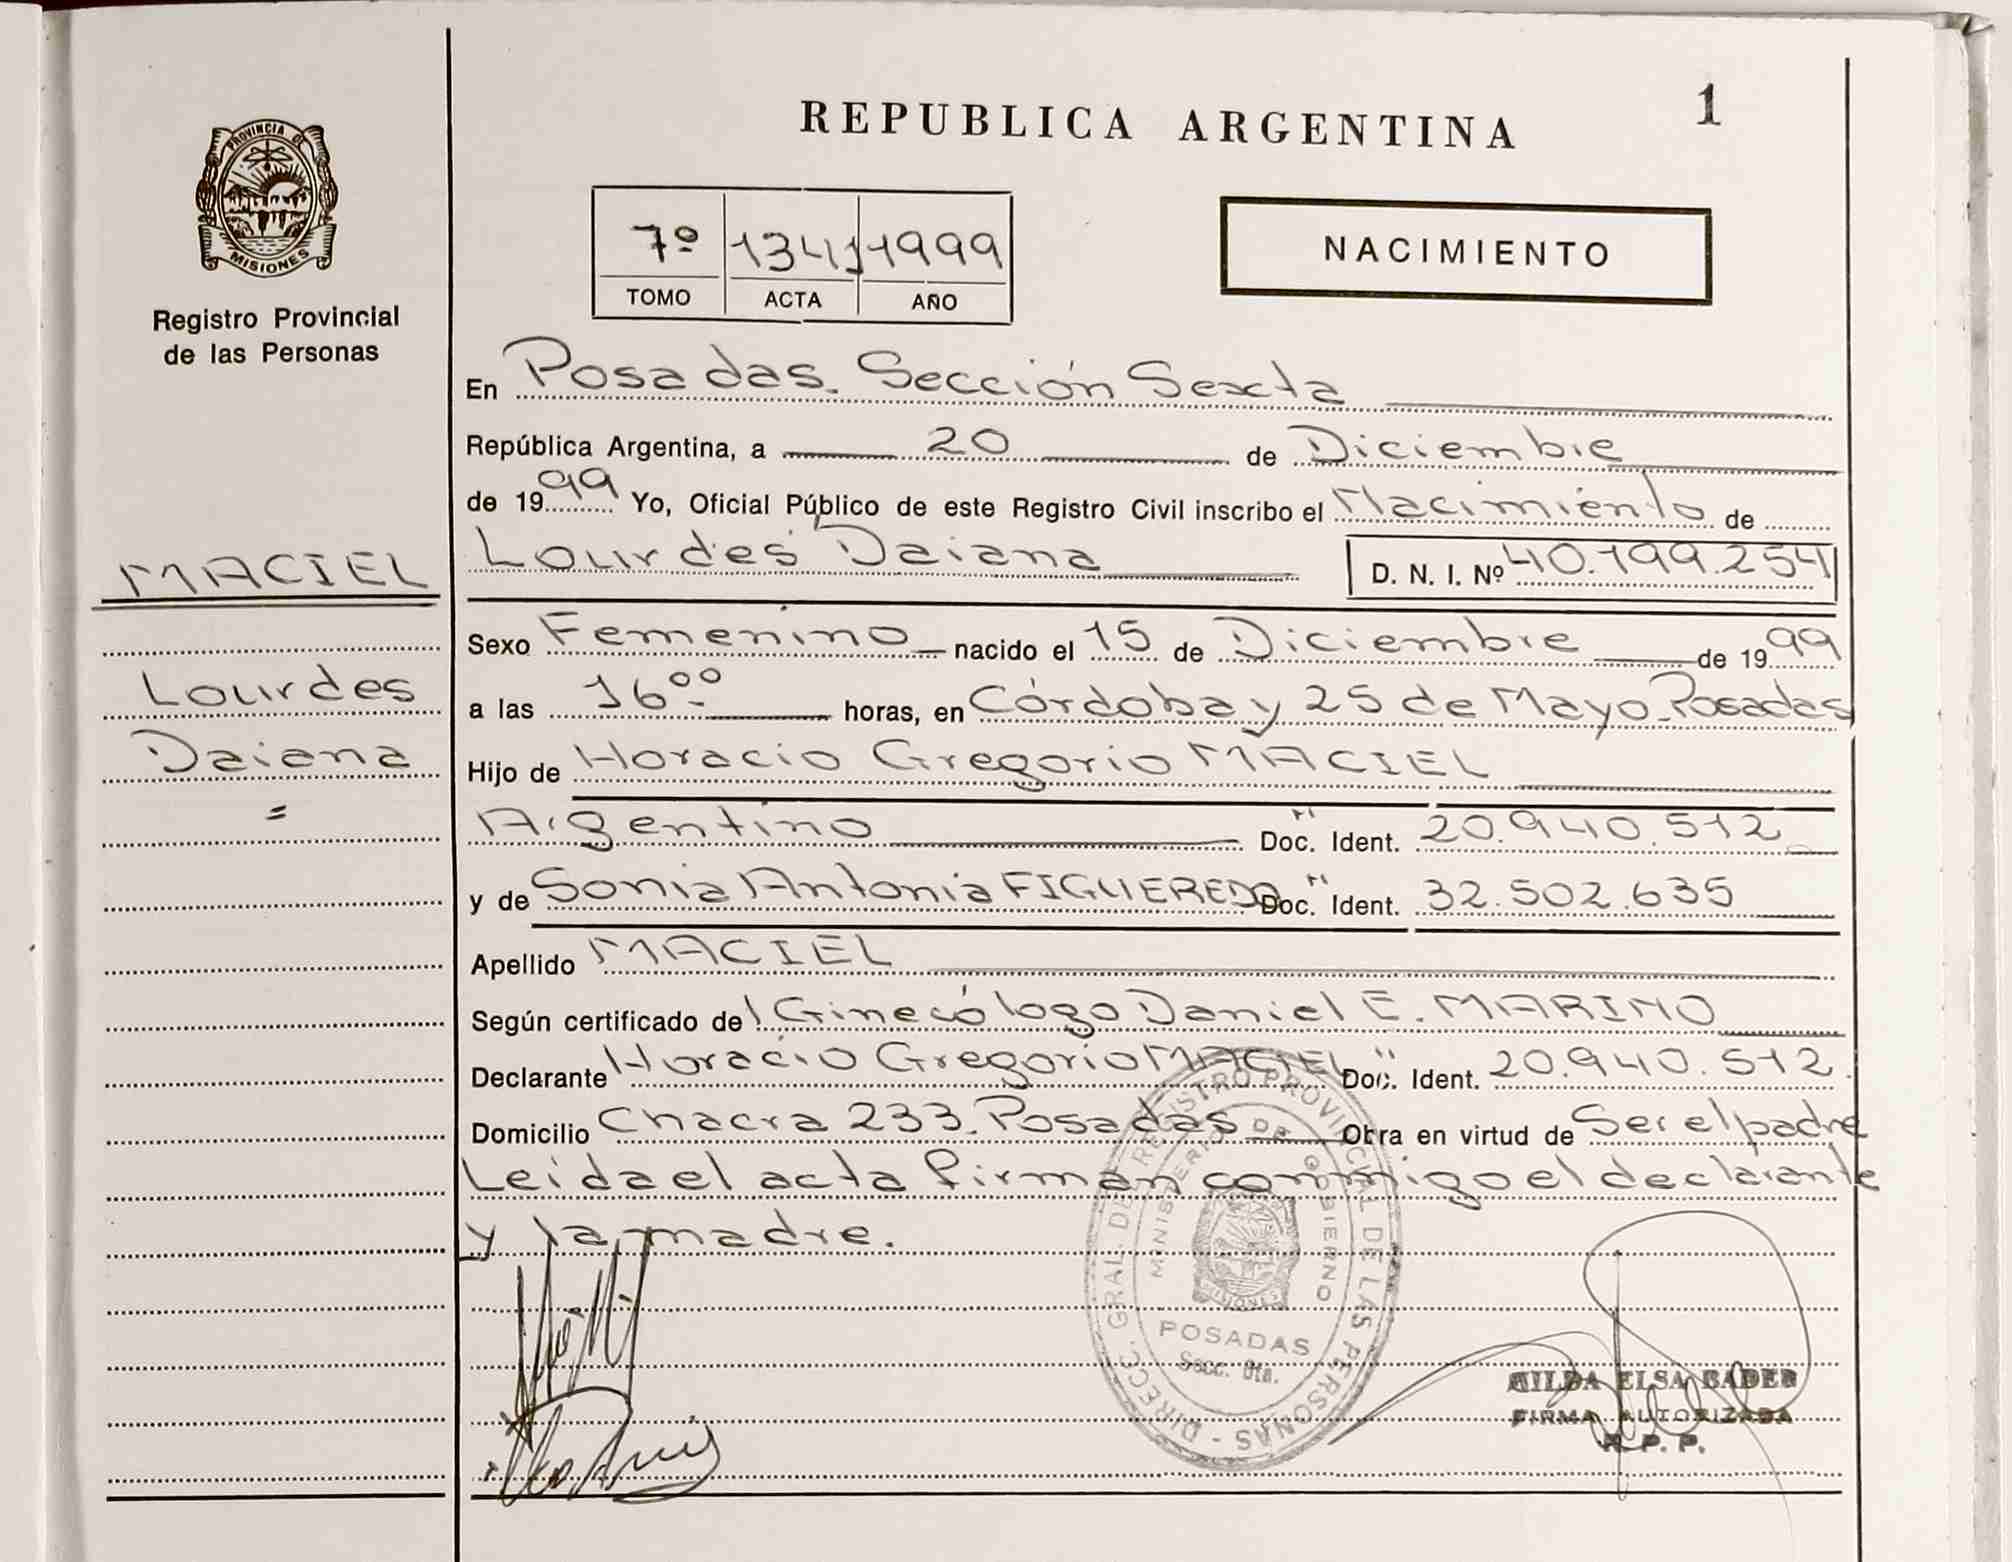 REPUBLICA ARGENTINA
1
PROVINCIA DE
MISIONES
Registro Provincial
de las Personas
7º 1341 1999
TOMO ACTA AÑO
NACIMIENTO
En Posadas. Sección Sexta
República Argentina, a 20 de Diciembre
de 1999 Yo, Oficial Público de este Registro Civil inscribo el Nacimiento de
Lourdes Daiana D. N. I. Nº 40.199.254
MACIEL
Lourdes
Daiana
=
Sexo Femenino nacido el 15 de Diciembre de 1999
a las 16⁰⁰ horas, en Córdoba y 25 de Mayo. Posadas
Hijo de Horacio Gregorio MACIEL
Argentino Doc. Ident. 20.940.512
y de Sonia Antonia FIGUEREDO Doc. Ident. 32.502.635
Apellido MACIEL
Según certificado del Ginecólogo Daniel E. MARINO
Declarante Horacio Gregorio MACIEL Doc. Ident. 20.940.512.
Domicilio Chacra 233. Posadas Obra en virtud de Ser el padre
Leida el acta firman conmigo el declarante
y la madre.
DIRECC. GRAL. DEL REGISTRO PROVINCIAL DE LAS PERSONAS -
MINISTERIO DE GOBIERNO
MISIONES
POSADAS
Secc. 6ta.
ELSA BADER
FIRMA AUTORIZADA
R. P. P.